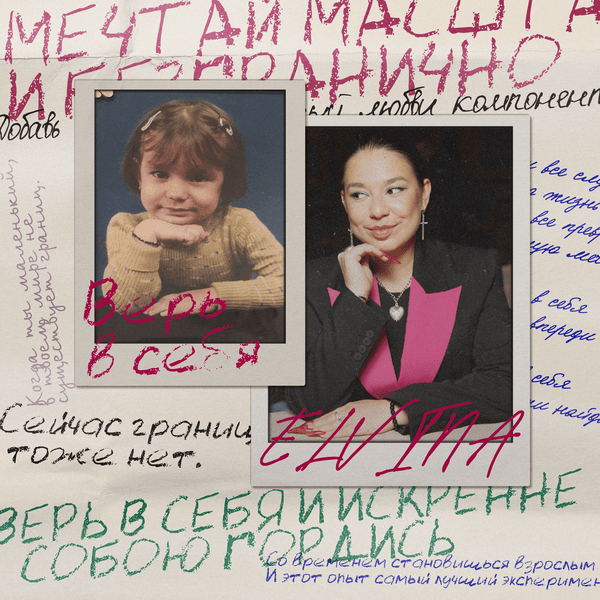 МЕЧТАЙ МАСШТА
И БЕЗГРАНИЧНО
Добавь
любви компонент
Когда ты маленький,
в твоем мире не
существует границ.
все слу
жизнь
все превр
в себя
впереди
себя
Верь
в себя
ELVINA
Сейчас границ
тоже нет.
ВЕРЬ В СЕБЯ И ИСКРЕННЕ
СОБОЮ ГОРДИСЬ
Со временем становишься взрослым
И этот опыт самый лучший эксперимен